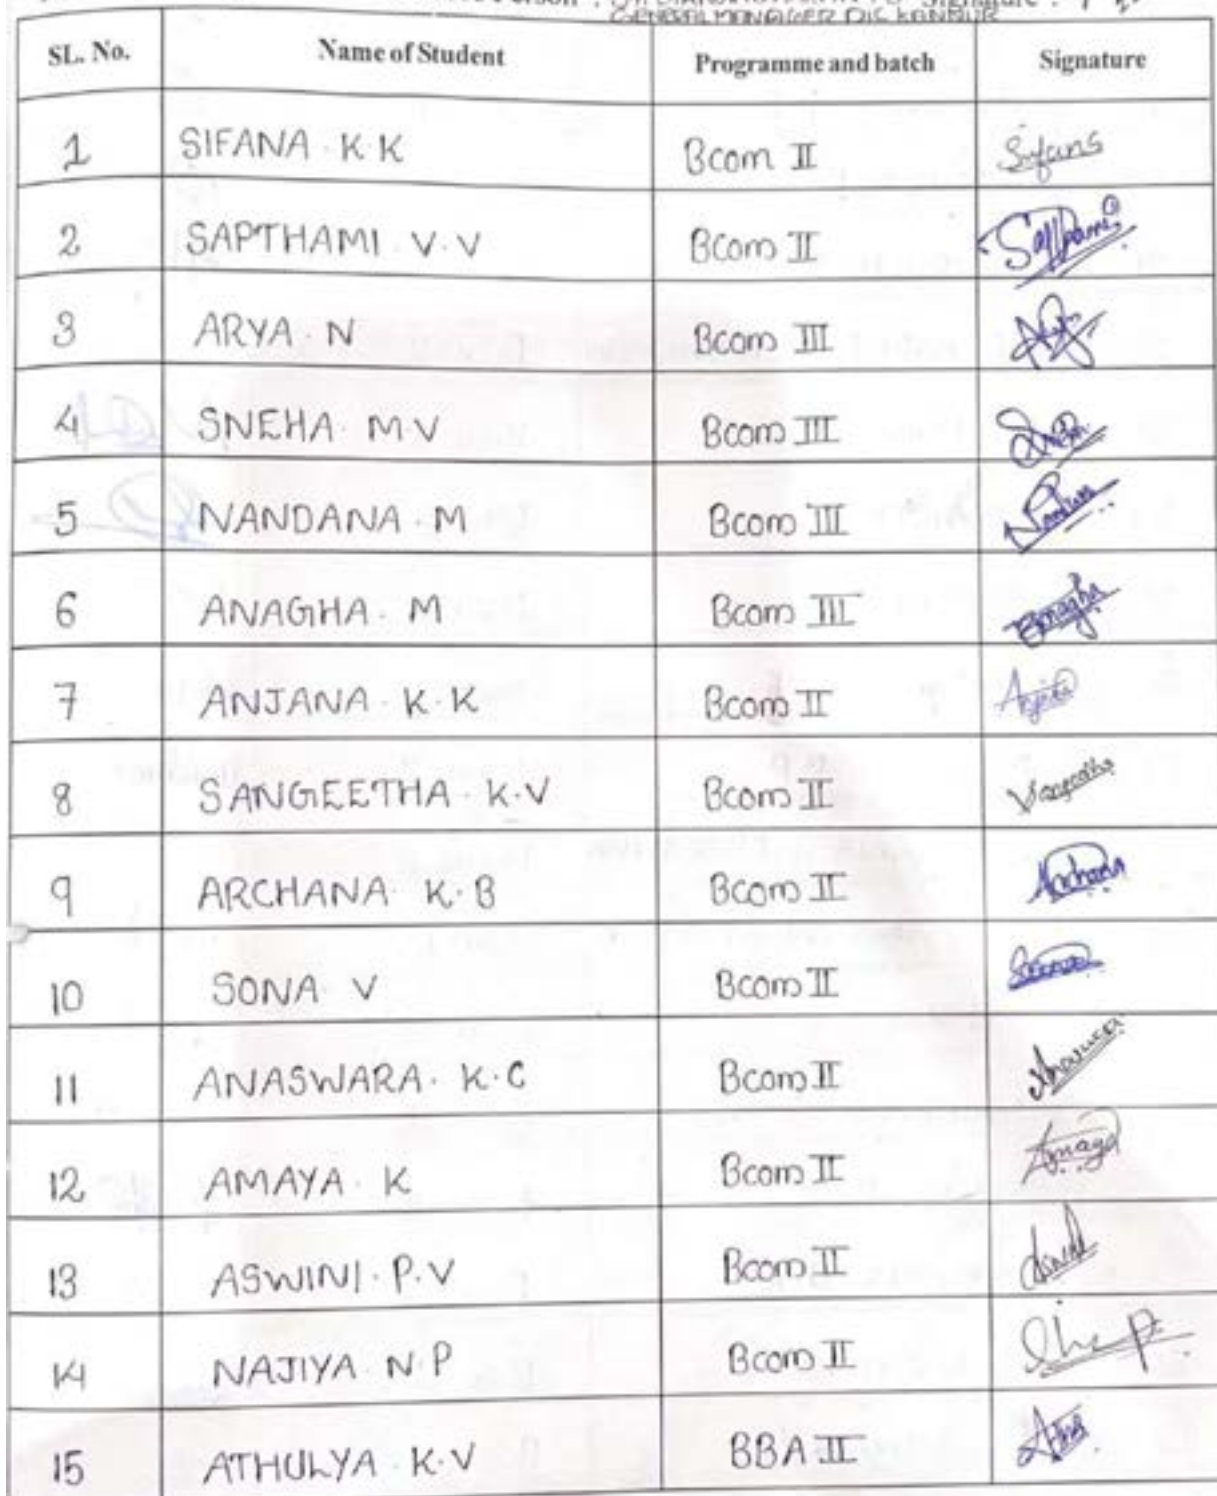 Person : Signature :
GENERAL MANAGER DIC KANNUR
SL. No. Name of Student Programme and batch Signature
1 SIFANA K K Bcom II Sifana
2 SAPTHAMI V.V Bcom II Sapthami
3 ARYA N Bcom III
4 SNEHA M.V Bcom III Sneha
5 NANDANA M Bcom III Nandana
6 ANAGHA. M Bcom III Anagha
7 ANJANA K.K Bcom II Anjana
8 SANGEETHA K.V Bcom II Sangeetha
9 ARCHANA K.B Bcom II Archana
10 SONA V Bcom II Sona
11 ANASWARA. K.C Bcom II
12 AMAYA K Bcom II Amaya
13 ASWINI. P.V Bcom II
14 NAJIYA N.P Bcom II
15 ATHULYA K.V BBA II